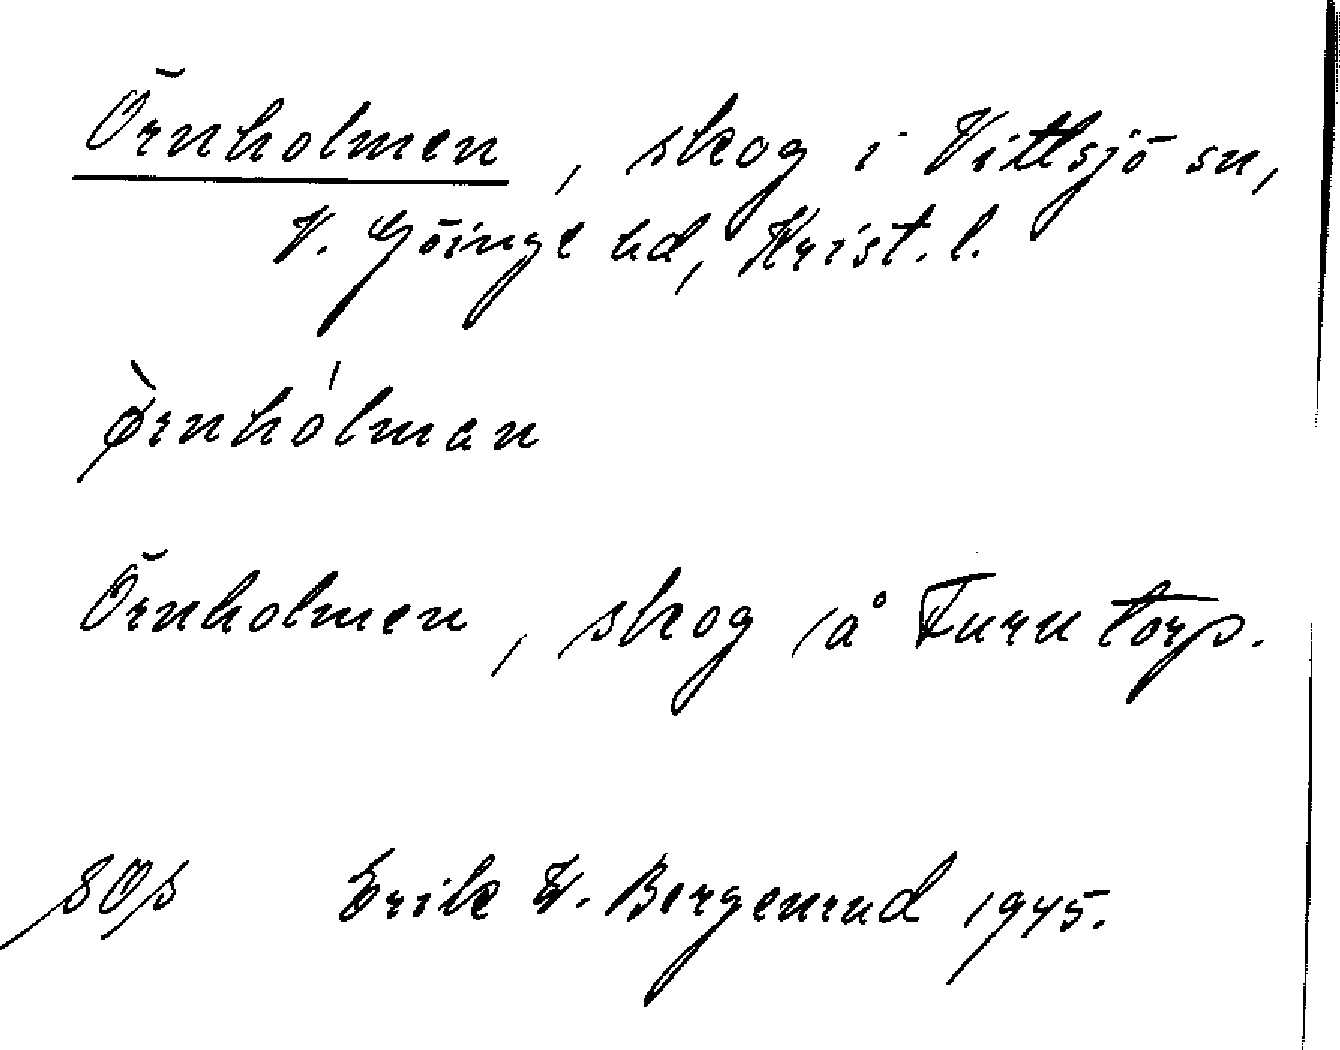 Örnholmen, skog i Vittsjö sn,
V. Göinge hd, Krist. l.
ǿrnhólman
Örnholmen, skog på Furutorp.
SOS Erik W. Bergenrud 1945.